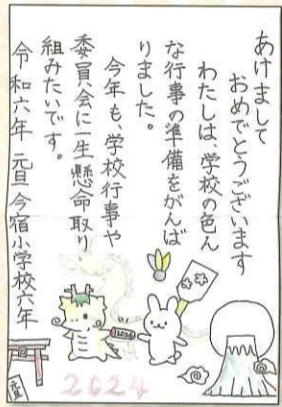 あけまして
おめでとうございます
わたしは、学校の色ん
な行事の準備をがんば
りました。
今年も、学校行事や
委員会に一生懸命取り
組みたいです。
令和六年 元旦 今宿小学校六年
2024